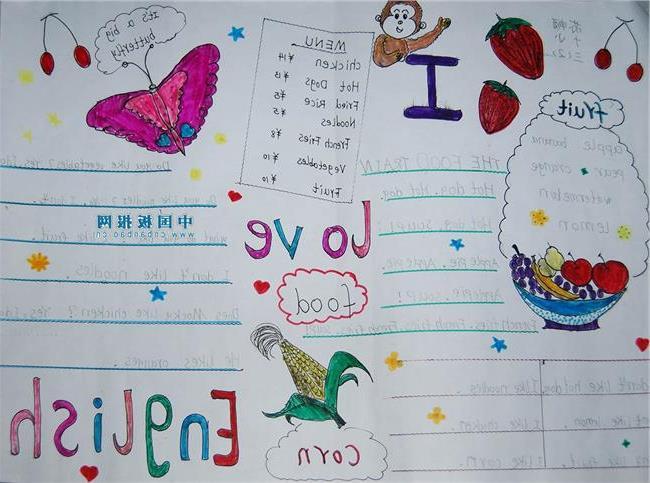 It's a big
butterfly
MENU
chicken
Hot Dogs
Fried Rice
Noodles ¥5
French Fries ¥8
Vegetables ¥10
Fruit ¥10
I
love
food
English
corn
fruit
apple banana
pear orange
watermelon
lemon
THE FOOD TRAIN
Hot dog, Hot dog.
Hot dog, soup!
Apple pie, Apple pie.
Apple pie, soup!
French fries, French fries, soup!
Do you like vegetables? Yes
Do you like noodles? No, I don't.
What do you like fruit.
I don't like noodles.
Does Mocky like chicken? Yes,
He likes oranges.
don't like hot dog. I like noodles.
like lemon. I like chicken.
like fruit. I like corn.
中国板报网
www.cnbaobao.cn